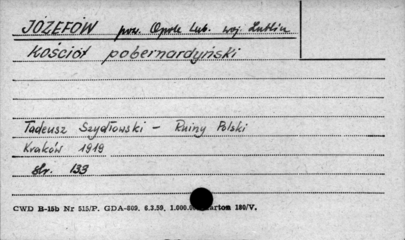 JÓZEFÓW pow. Opole Lub. woj. Lublin
Kościół pobernardyński
Tadeusz Szydłowski - Ruiny Polski
Kraków 1919
str. 133
CWD B-15b Nr 515/P. GDA-809. 6.3.59. 1.000.0 karton 180/V.